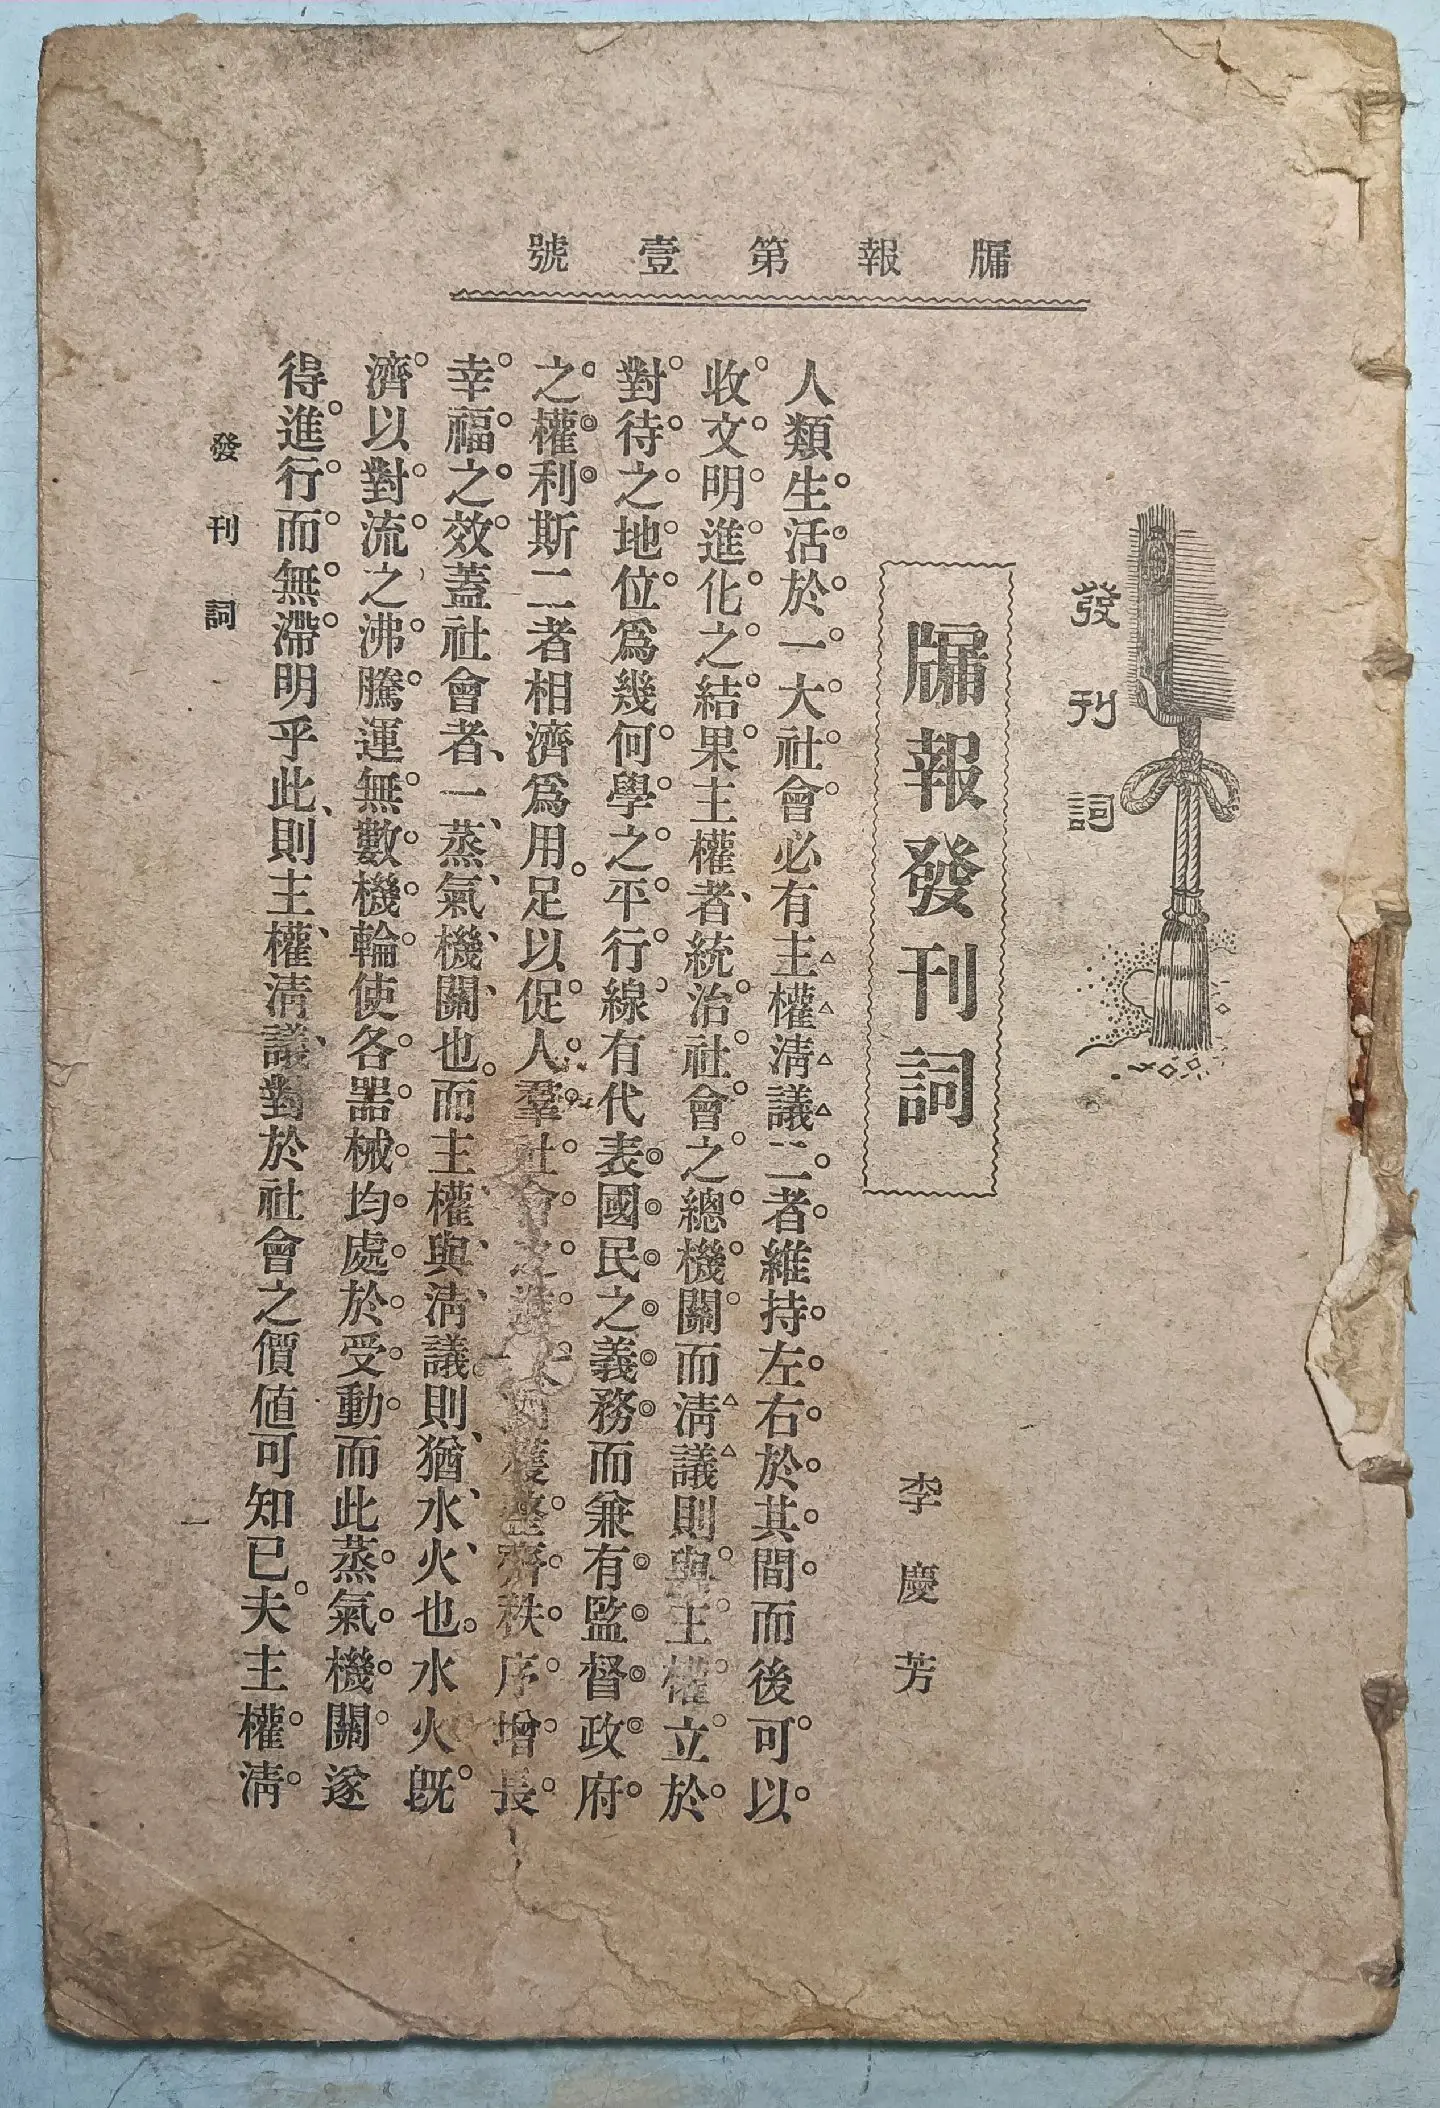 牖報第壹號
發刊詞
牖報發刊詞
李慶芳
人類生活於一大社會必有主權淸議二者維持左右於其間而後可以
收文明進化之結果主權者、統治社會之總機關而淸議則與主權立於
對待之地位爲幾何學之平行線有代表國民之義務而兼有監督政府
之權利斯二者相濟爲用。足以促人羣社會之進獲整齊秩序增長
幸福之效蓋社會者、一蒸氣機關也。而主權與淸議則猶水火也。水火旣
濟以對流之沸騰運無數機輪使各器械均處於受動而此蒸氣機關遂
得進行而無滯明乎此、則主權淸議對於社會之價値可知已。夫主權淸
發刊詞
一